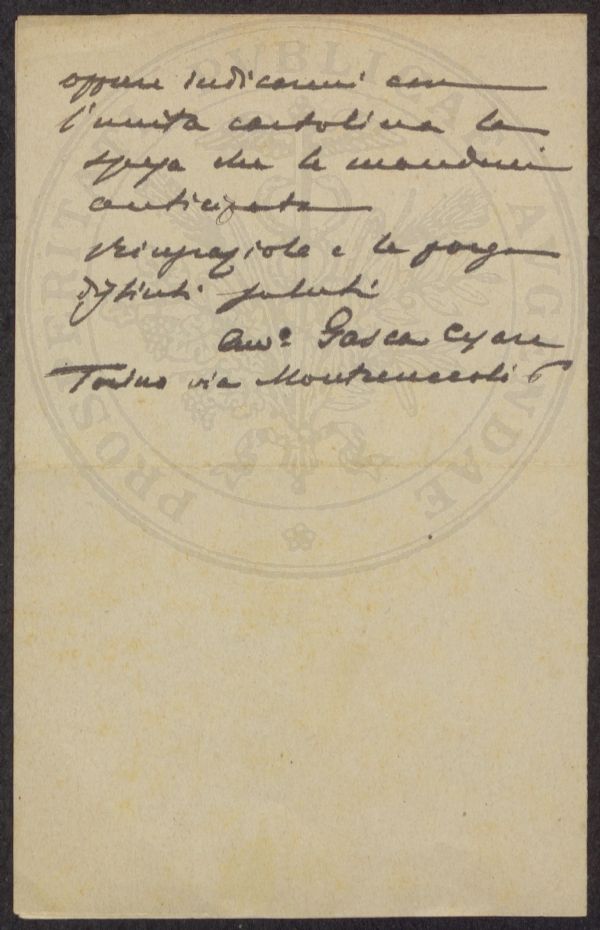 oppure indicarmi con
l'unita cartolina la
speza che le manderei
anticipata
Ringraziole e le porgo
distinti saluti
Avv.º Gasca Cesare
Torino via Montecuccoli 6
PROSPERITATI PVBLICAE AVGENDAE